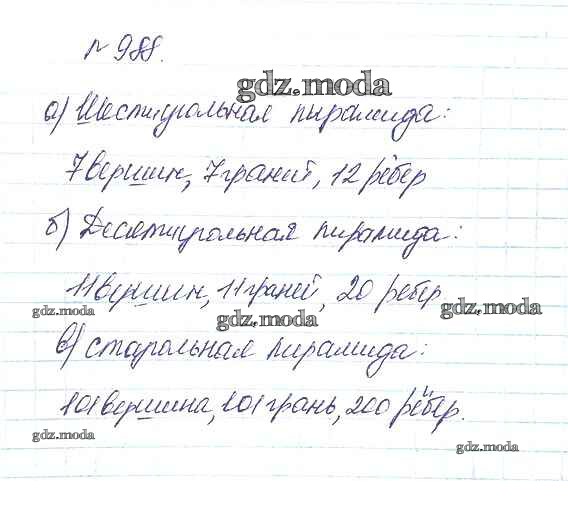 № 988.
gdz.moda
а) Шестиугольная пирамида:
7 вершин, 7 граней, 12 рёбер
б) Десятиугольная пирамида:
11 вершин, 11 граней, 20 ребер
gdz.moda gdz.moda gdz.moda
в) стоугольная пирамида:
101 вершина, 101 грань, 200 рёбер.
gdz.moda gdz.moda